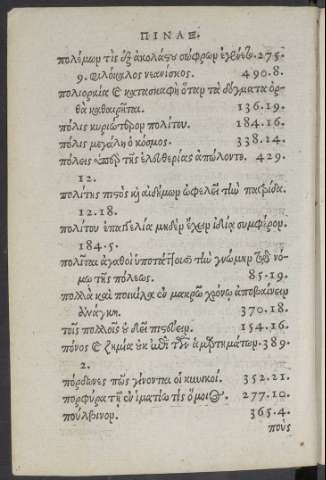 ΠΙΝΑΞ.
πολέμων τὶς ἐξ ἀκολάστου σώφρων ἐγένετο. 275.
9. Φιλόκαλος νεανίσκος. 490.8.
πολιορκία ϗ κατασκαφὴ ὅταν τὰ δόγματα ὀρ-
θὰ καθαιρῆται. 136.19.
πόλις κυριώτερον πολίτου. 184.16.
πόλις μεγάλη ὁ κόσμος. 338.14.
πόλεις ὑπὲρ τῆς ἐλευθερίας ἀπώλοντο. 429.
12.
πολίτης πιστὸς κỳ αἰδήμων ὠφελεῖ τὴν πατρίδα.
12.18.
πολίτου ἐπαγγελία μηδὲν ἔχειν ἰδίᾳ συμφέρον.
184.5.
πολῖται ἀγαθοὶ ὑποτάττουσι τὴν γνώμην τῷ νό-
μῳ τῆς πόλεως. 85.19.
πολλὰ καὶ ποικίλα ἐν μακρῷ χρόνῳ ἀποβαίνειν
ἀνάγκη. 370.18.
τοῖς πολλοῖς οὐ δεῖ πιστεύειν. 154.16.
πόνος ϗ ζημία οὐκ ἄξια τῶν ἁμαρτημάτων. 389.
2.
πόρδωνες πῶς γίνονται οἱ κυνικοί. 352.21.
πορφύρα τῇ ἐν ἱματίῳ τίς ὅμοιος. 277.10.
πουλβῖνον. 365.4.
πους